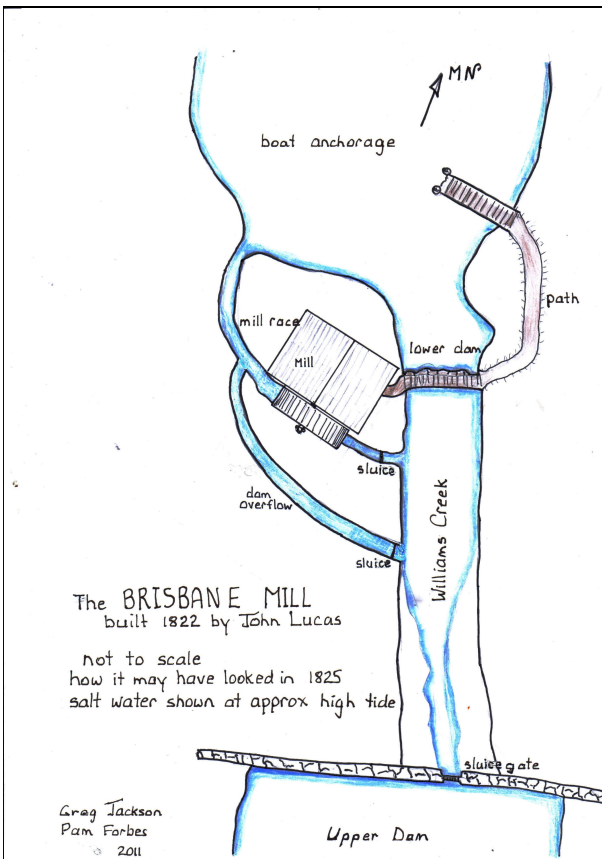 MN
boat anchorage
path
mill race
lower dam
Mill
sluice
dam
overflow
Williams Creek
sluice
The BRISBANE MILL
built 1822 by John Lucas
not to scale
how it may have looked in 1825
salt water shown at approx high tide
sluice gate
Greg Jackson
Pam Forbes
2011
Upper Dam